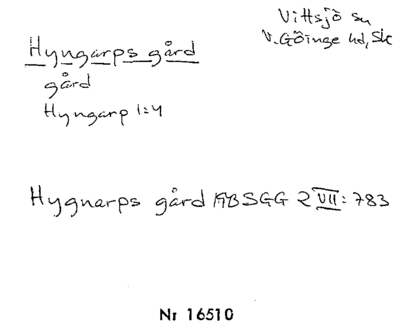 Vittsjö sn
V. Göinge hd, Sk
Hyngarps gård
gård
Hyngarp 1:4
Hygnarps gård ABSGG 2 VII: 783
Nr 16510